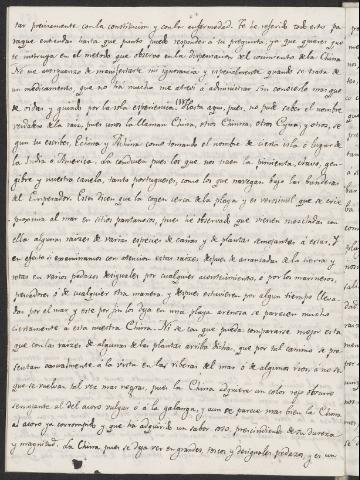 tar previamente con la constitucion y con la enfermedad. Te he referido todo esto pa
raque entiendas hasta que punto puedo responder á tu pregunta, ya que quieres que
te instruya en el metodo que observo en la dispensacion del cocimiento de la China
No me avergonzo de manifestarte mi ignorancia y especialmente quando se trata de
un medicamento, que no ha mucho me atreví á administrar sin conocerlo mas que
de oidas y guiado por la sola experiencia. Hasta aqui, pues, no pude saber el nombre
verdadero de la raiz, pues unos la llaman Chyna, otros Chinna, otros Cyna, y otros, se
gun tu escribes, Echina y Achina como tomando el nombre de cierta isla ó lugar de
la India ó America. La conducen pues los que nos traen la pimienta, clavo, gen
gibre y nuestra canela, tanto portugueses, como los que navegan baxo las banderas
del Emperador. Estos dicen que la cogen cerca de la playa, y es verosimil que se crie
proxima al mar en sitios pantanosos, pues he observado que vienen mezcladas con
ella algunas raizes de varias especies de cañas y de plantas semejantes á estas. Y
en efecto si examinamos con atencion estas raizes despues de arrancadas de la tierra y
rotas en varios pedazos desiguales por cualquier acontecimiento, ó por los marineros,
pescadores ó de cualquier otra manera, y despues estuvieren por algun tiempo lleva
das por el mar y este por fin los deja en una playa arenosa se parecen mucho
ciertamente á esta nuestra China. No sé con que pueda compararse mejor esta
que con las raizes de algunas de las plantas arriba dichas, que por tal camino se pre
sentan casualmente á la vista en las riberas del mar ó de algunos rios, á no ser
que se vuelvan tal vez mas negras, pues la China adquiere un color rojo obscuro
semejante al del acoro vulgar ó á la galanga, y aun se parece mas bien la China
al acoro ya corrompido y que ha adquirido un sabor soso, prescindiendo de su dureza
y magnitud. La China pues se deja ver en grandes, toscos y desiguales pedazos, y es un